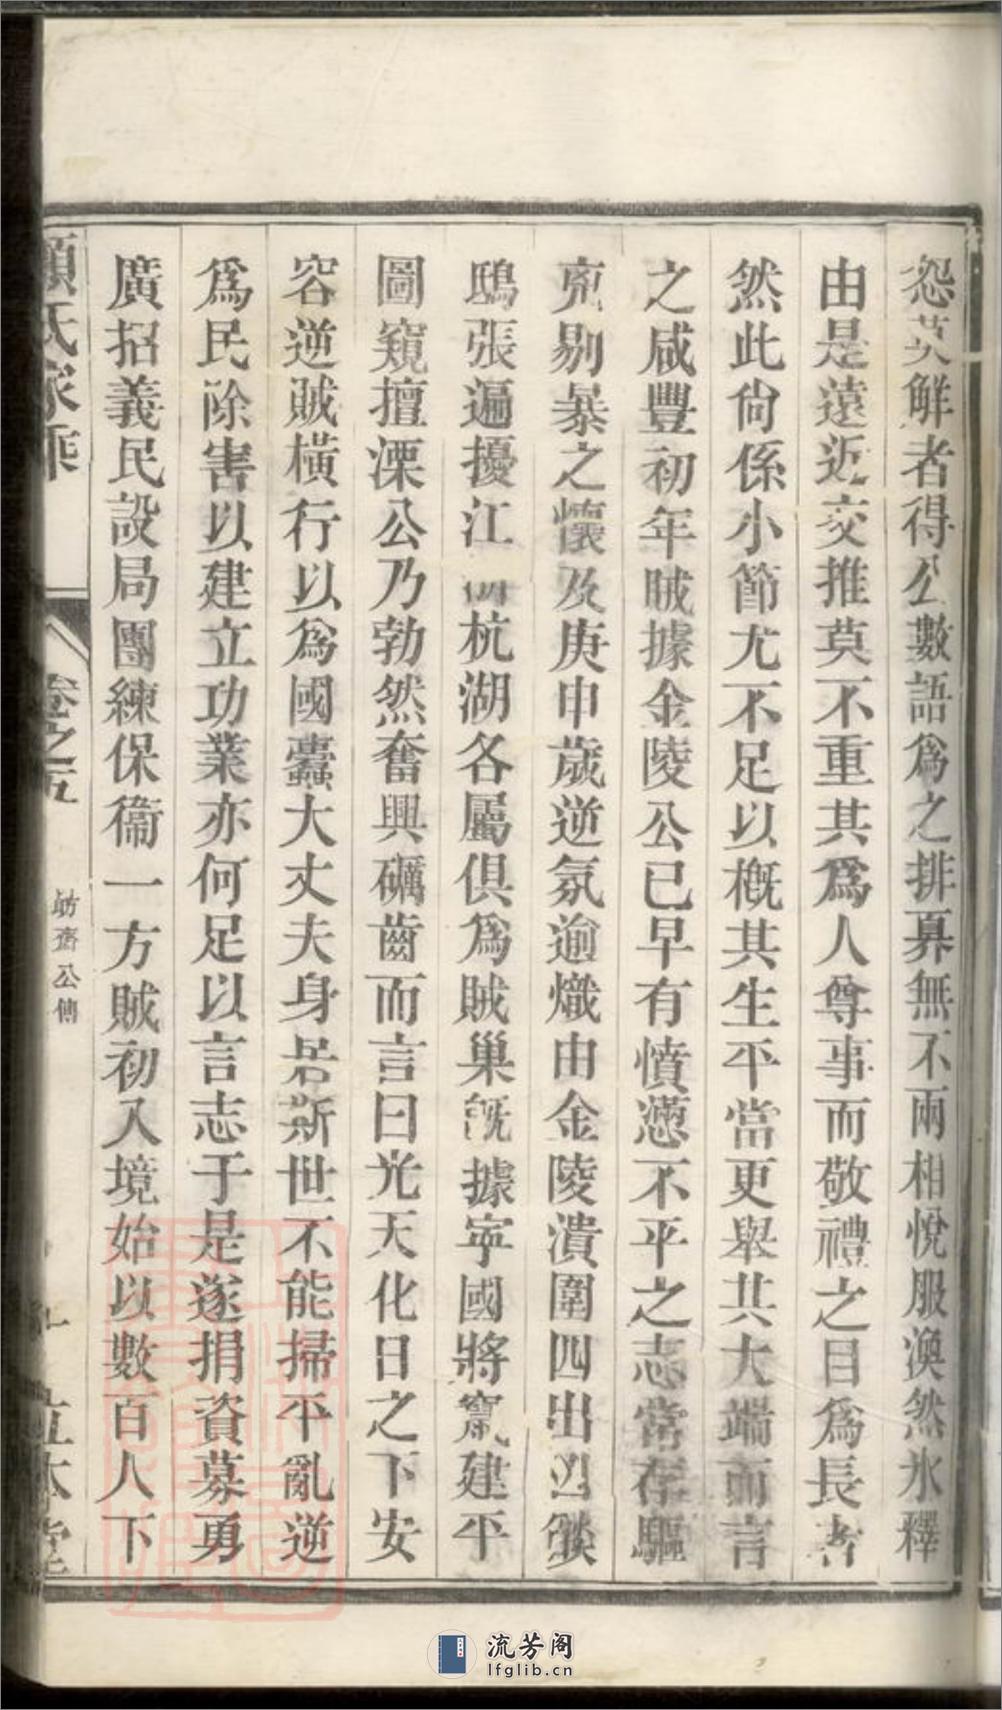 怨莫解者得公數語爲之排算無不兩相悅服渙然氷釋
由是遠近交推莫不重其爲人尊事而敬禮之目爲長者
然此尙係小節尤不足以槪其生平當更舉其大端而言
之咸豐初年賊據金陵公已早有憤懣不平之志常存驅
剔暴之懷及庚申歲逆氛逾熾由金陵潰圍四出凶燄
鴟張遍擾江杭湖各屬俱爲賊巢旣據寜國將窺建平
圖窺擅溧公乃勃然奮興礪齒而言曰光天化日之下安
容逆賊橫行以爲國蠹大丈夫身居斯世不能掃平亂逆
爲民除害以建立功業亦何足以言志于是遂捐資募勇
廣招義民設局團練保衞一方賊初入境始以數百人下
氏家乘
卷之五
舫齋公傳
流芳阁
lfglib.cn